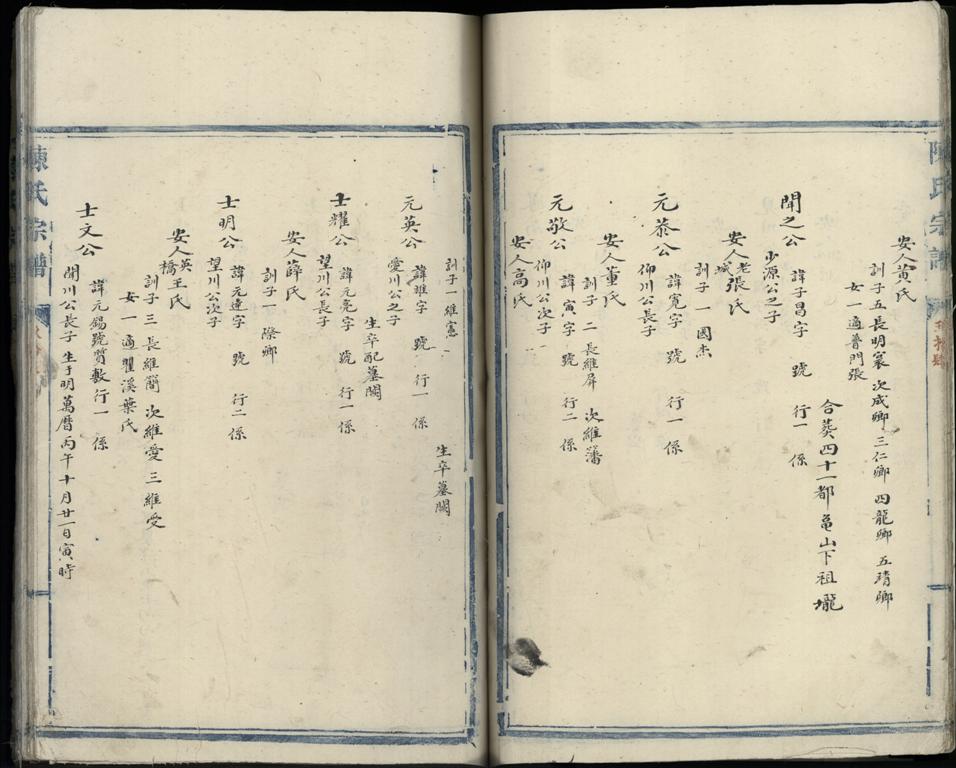 陳氏宗譜
安人黃氏
訓子五長明寰 次咸卿 三仁卿 四龍卿 五琦卿
女一適普門張
合葵四十一都龜山下祖壠
聞之公
諱子昌字 號 行一 係
少源公之子
安人老城張氏
訓子一 國杰
元恭公
諱寬字 號 行一 係
仰川公長子
安人董氏
訓子二 長維屏 次維藩
元敬公
諱寅字 號 行二 係
仰川公次子
安人高氏
訓子一維憲
生卒墓闕
元英公
諱雄字 號 行一 係
愛川公之子
生卒配墓闕
士耀公
諱元亮字 號 行一 係
望川公長子
安人薛氏
訓子一際卿
士明公
諱元達字 號 行二 係
望川公次子
安人英橋王氏
訓子三 長維蘭 次維愛 三維受
女一適瞿溪葉氏
士文公
諱元錫號質敷行一 係
開川公長子 生于明萬曆丙午十月廿一日寅時
陳氏宗譜